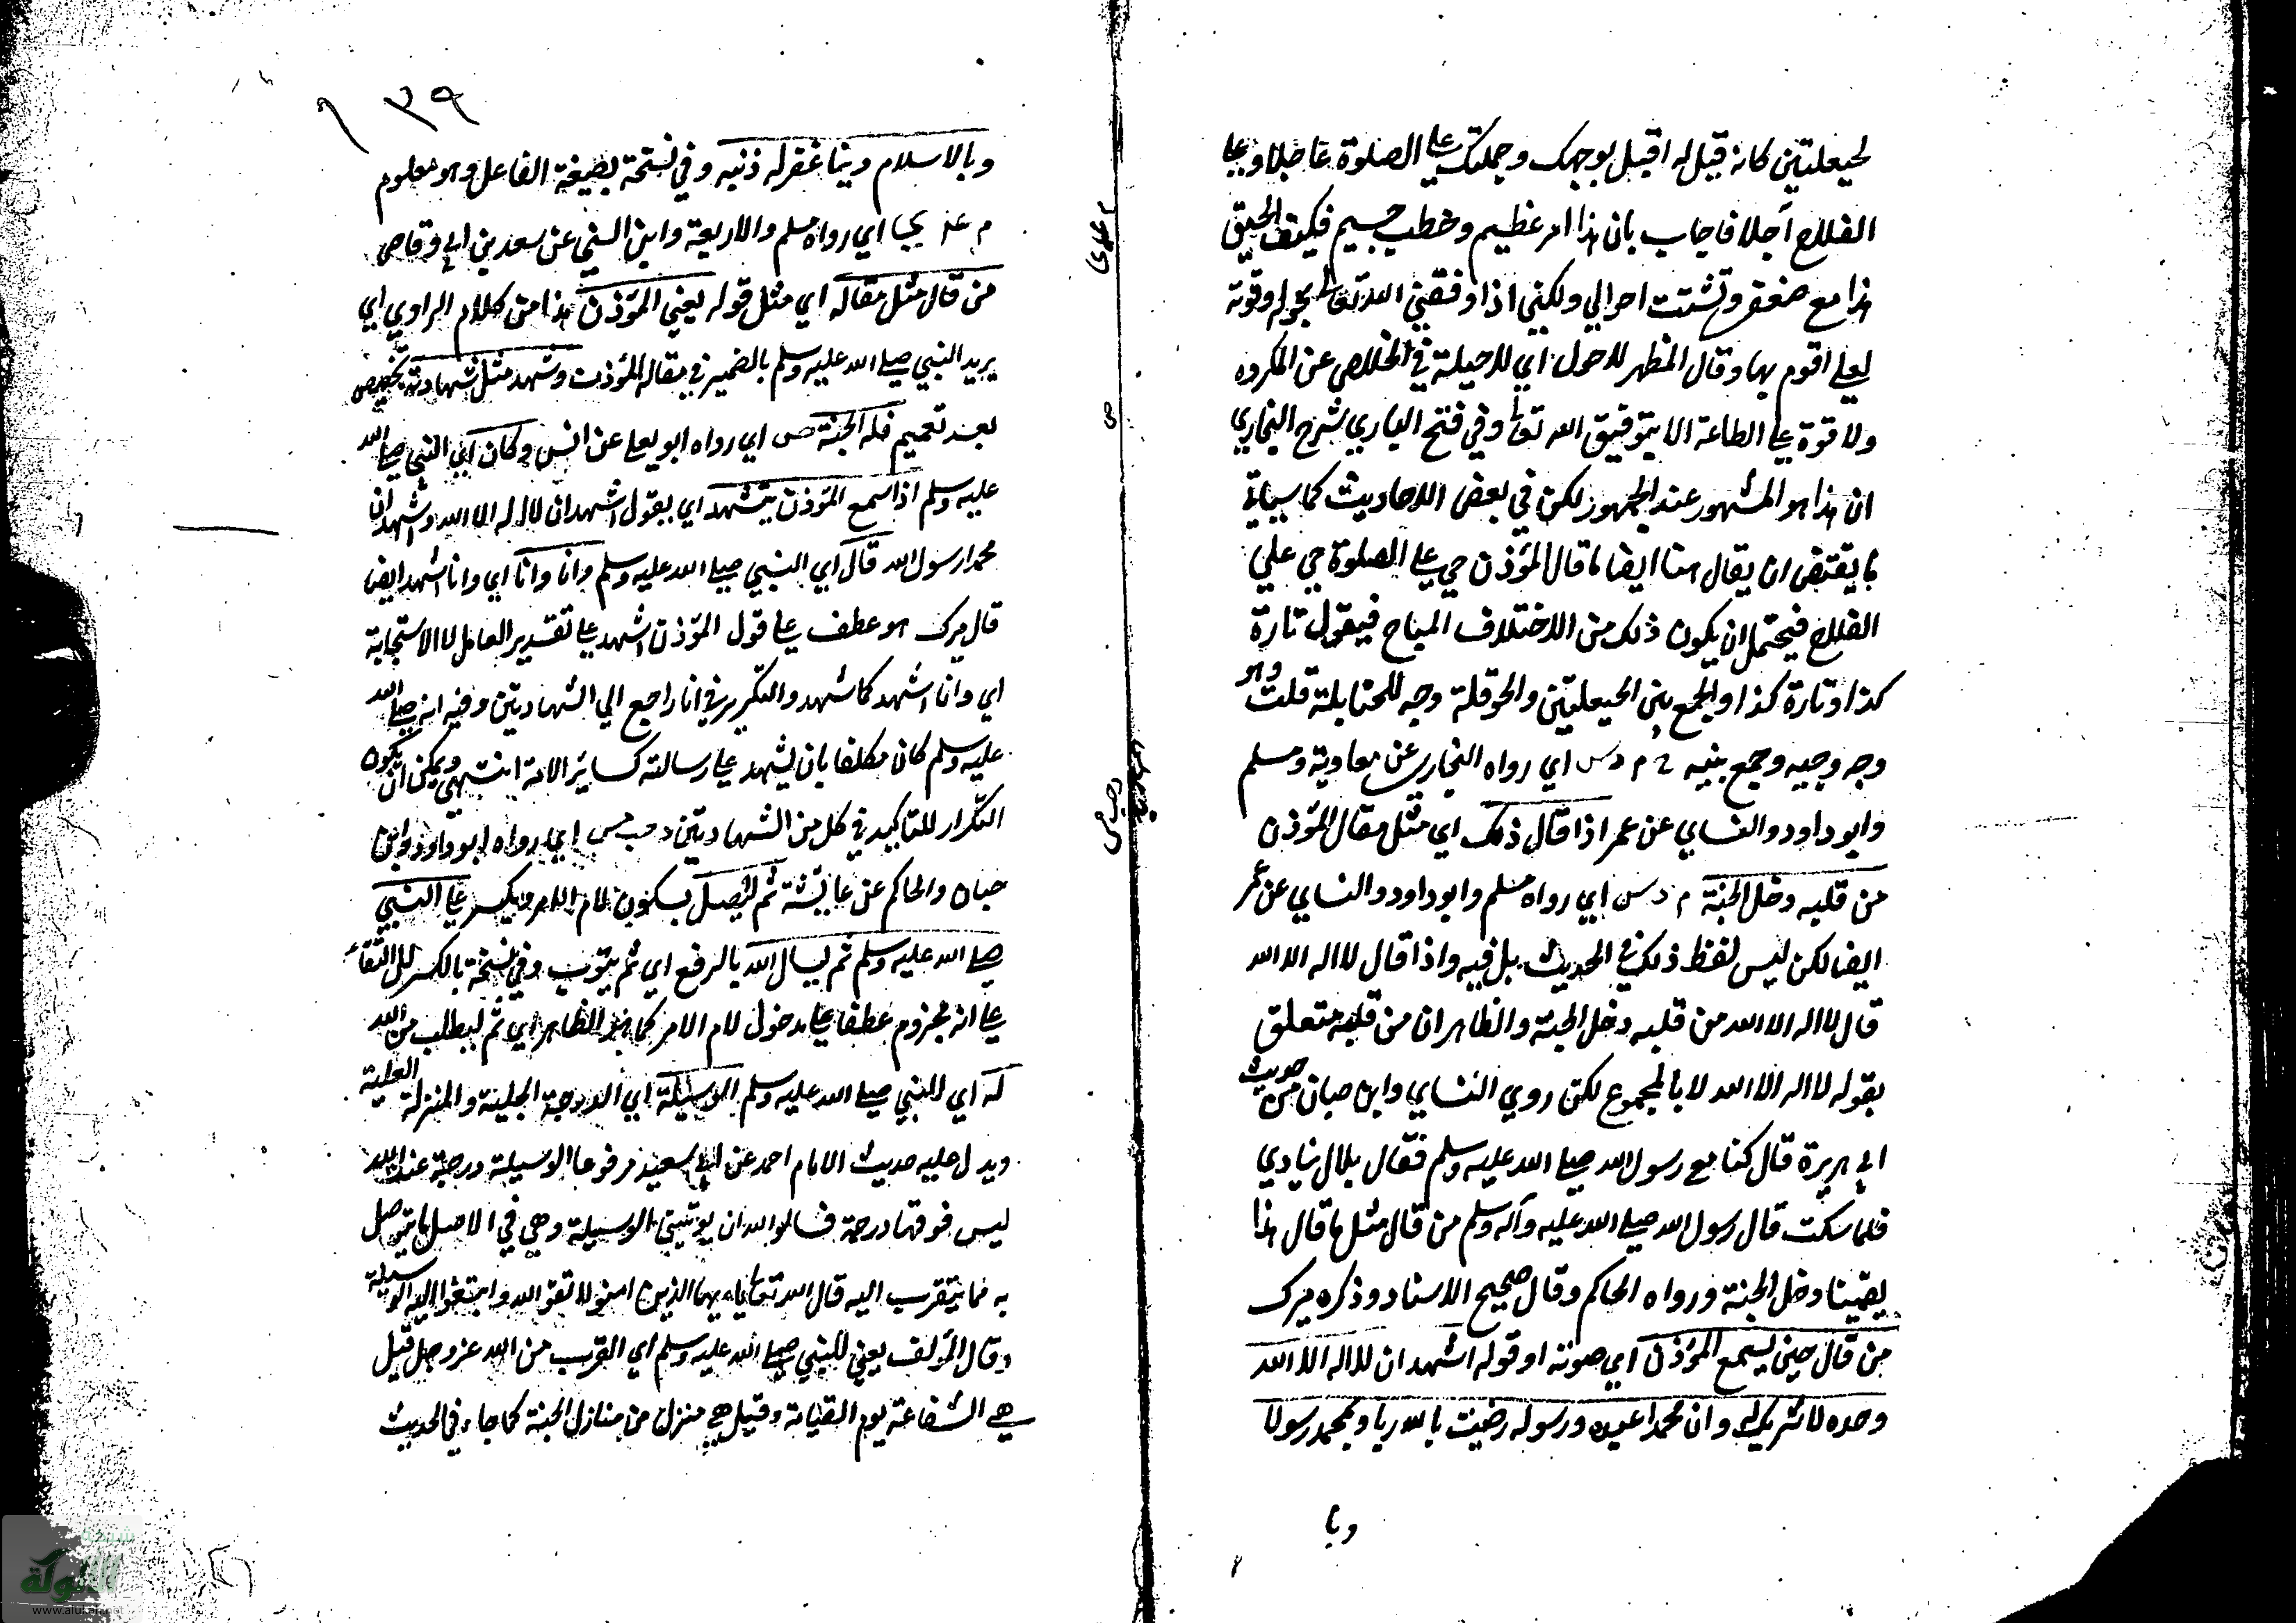 لحيعلتين كانه قيل له اقبل بوجهك وجملتك على الصلوة عاجلا وعلى
الفلاح آجلا فاجاب بان هذا امر عظيم وخطب جسيم فكيف الحيق
هذا مع ضعفي وتشتت احوالي ولكني اذا وفقني الله تعالى بحوله وقوته
لعلي اقوم بها وقال المظهر لا حول اي لا حيلة في الخلاص عن المكروه
ولا قوة على الطاعة الا بتوفيق الله تعالى وفي فتح الباري شرح البخاري
ان هذا هو المشهور عند الجمهور لكن في بعض الاحاديث كما سياتي
ما يقتضى ان يقال هنا ايضا ما قال المؤذن حي على الصلوة حي علي
الفلاح فيحتمل ان يكون ذلك من الاختلاف المباح فيقول تارة
كذا وتارة كذا والجمع بين الحيعلتين والحوقلة وجه للحنابلة قلت وهو
وجه وجيه وجمع بنيه خ م د س اي رواه البخاري عن معاوية ومسلم
وابو داود والنساي عن عمر اذا قال ذلك اي مثل مقال المؤذن
من قلبه دخل الجنة م د س اي رواه مسلم وابو داود والنساي عن عمر
ايضا لكن ليس لفظ ذلك في الحديث بل فيه واذا قال لا اله الا الله
قال لا اله الا الله من قلبه دخل الجنة والظاهر ان من قلبه متعلق
بقوله لا اله الا الله لا بالمجموع لكن روي النساي وابن حبان من حديث
ابي هريرة قال كنا مع رسول الله صلى الله عليه وسلم فقال بلال ينادي
فلما سكت قال رسول الله صلى الله عليه وآله وسلم من قال مثل ما قال هذا
يقينا دخل الجنة ورواه الحاكم وقال صحيح الاسناد وذكره ميرك
من قال حين يسمع المؤذن اي صوته او قوله اشهد ان لا اله الا الله
وحده لا شريك له وان محمدا عبده ورسوله رضيت بالله ربا وبمحمد رسولا
وبا
١٣٩
وبالاسلام دينا غفر له ذنبه وفي نسخة بصيغة الفاعل وهو معلوم
م عه ي اي رواه مسلم والاربعة وابن السني عن سعد بن ابي وقاص
من قال مثل مقاله اي مثل قوله يعني المؤذن هذا من كلام الراوي اي
يريد النبي صلى الله عليه وسلم بالضمير في مقاله المؤذن وشهد مثل شهادته تخصيص
بعد تعميم فله الجنة ص اي رواه ابو يعلى عن انس وكان اي النبي صلى الله
عليه وسلم اذا سمع المؤذن يتشهد اي يقول اشهد ان لا اله الا الله واشهد ان
محمدا رسول الله قال اي النبي صلى الله عليه وسلم وانا وانا اي وانا اشهد ايضا
قال ميرك هو عطف على قول المؤذن اشهد على تقدير العامل لا الاستجابة
اي وانا اشهد كما شهد والتكرير في انا راجع الي الشهادتين وفيه انه صلى الله
عليه وسلم كان مكلفا بان يشهد على رسالته كسائر الامة انتهى ويمكن ان يكون
التكرار للتاكيد في كل من الشهادتين د حب مس اي رواه ابو داود وابن
حبان والحاكم عن عائشة ثم ليصل بسكون لام الامر وبكسر على النبي
صلى الله عليه وسلم ثم ليسال الله بالرفع اي ثم يتوب وفي نسخة بالكسر للالتقاء
على انه مجزوم عطفا على مدخول لام الامر كما هو الظاهر اي ثم ليطلب من الله
له اي للنبي صلى الله عليه وسلم الوسيلة اي الدرجة الجلية والمنزلة العلية
ويدل عليه حديث الامام احمد عن ابي سعيد مرفوعا الوسيلة درجة عند الله
ليس فوقها درجة فسالوا الله ان يوتيني الوسيلة وهي في الاصل ما يتوصل
به مما يتقرب اليه قال الله تعالى يا ايها الذين امنوا اتقوا الله وابتغوا اليه الوسيلة
وقال المؤلف يعني للنبي صلى الله عليه وسلم اي القرب من الله عز وجل قيل
هي الشفاعة يوم القيامة وقيل هي منزل من منازل الجنة كما جاء في الحديث
شبكة
الألوكة